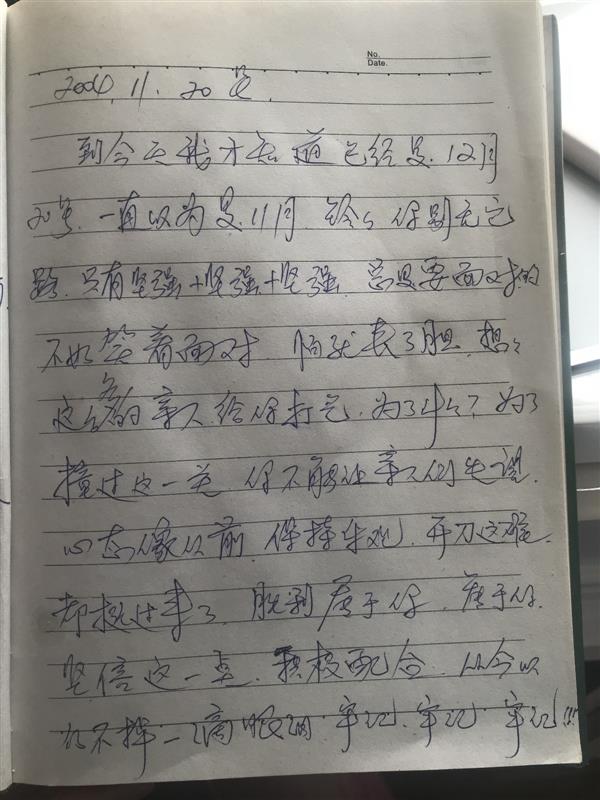 No.
Date.
2004.11.20号.
到今天我才知道已经是.12月
20号.一直以为是.11月.铃铃你别无它
路.只有坚强+坚强+坚强.总是要面对的
不如笑着面对.怕就丧了胆.想想
这么多的亲人给你打气.为了什么?为了
撞过这一关.你不能让亲人们失望.
心态像从前.保持乐观.开刀这难.
却挺过来了.胜利属于你.属于你.
坚信这一点.积极配合.从今以
后不掉一滴眼泪.牢记.牢记.牢记!!!